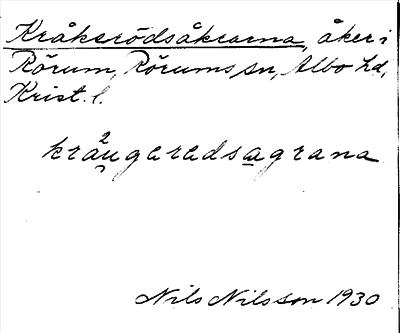 Kråkerödsåkrarna, åker i
Rörum, Rörums sn, Albo hd,
Krist. l.
kräu̯garedsagrana
Nils Nilsson 1930